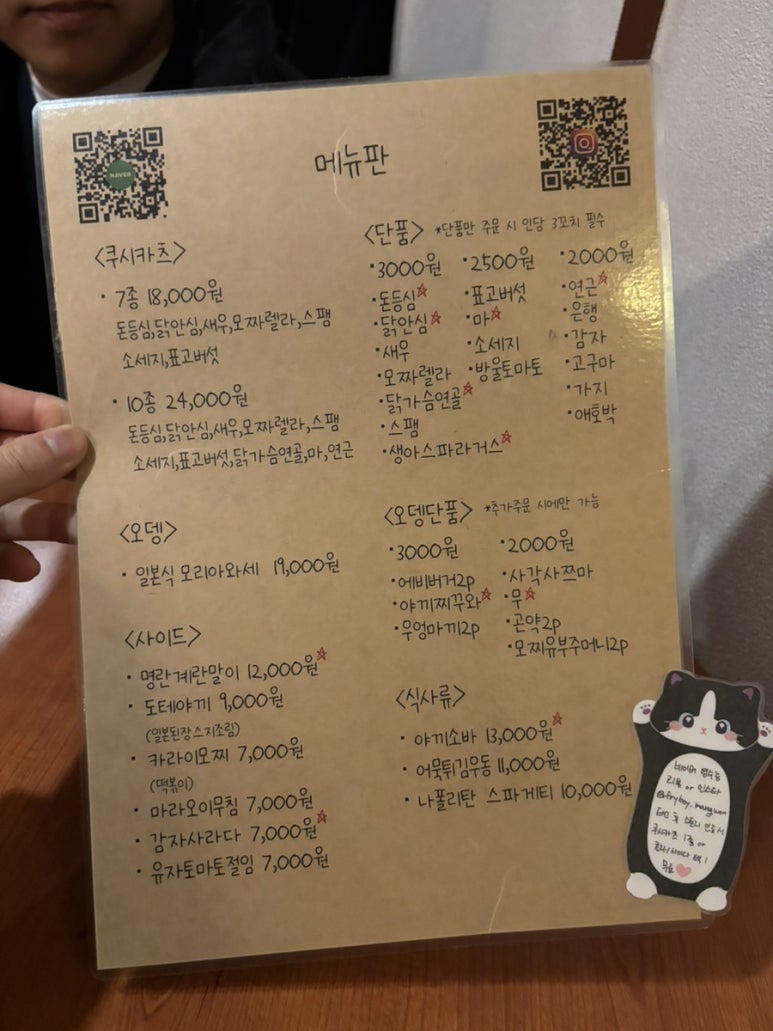 메뉴판
NAVER
<쿠시카츠>
· 7종 18,000원
돈등심,닭안심,새우,모짜렐라,스팸
소세지,표고버섯
· 10종 24,000원
돈등심,닭안심,새우,모짜렐라,스팸
소세지,표고버섯,닭가슴연골,마,연근
<오뎅>
· 일본식 모리아와세 19,000원
<사이드>
· 명란계란말이 12,000원☆
· 도테야끼 9,000원
(일본된장스지조림)
· 카라이모찌 7,000원
(떡볶이)
· 마라오이무침 7,000원
· 감자사라다 7,000원☆
· 유자토마토절임 7,000원
<단품> *단품만 주문 시 인당 3꼬치 필수
·3000원
·돈등심☆
·닭안심☆
·새우
·모짜렐라
·닭가슴연골☆
·스팸
·생아스파라거스☆
·2500원
·표고버섯
·마☆
·소세지
·방울토마토
·2000원
·연근☆
·은행
·감자
·고구마
·가지
·애호박
<오뎅단품> *추가주문 시에만 가능
·3000원
·에비버거2p
·야끼찌꾸와☆
·우엉마끼2p
·2000원
·사각사쯔마
·무☆
·곤약2p
·모찌유부주머니2p
<식사류>
· 야끼소바 13,000원☆
· 어묵튀김우동 11,000원
· 나폴리탄 스파게티 10,000원
네이버 영수증
리뷰 or 인스타
쿠시카츠 1종 or
무료♡